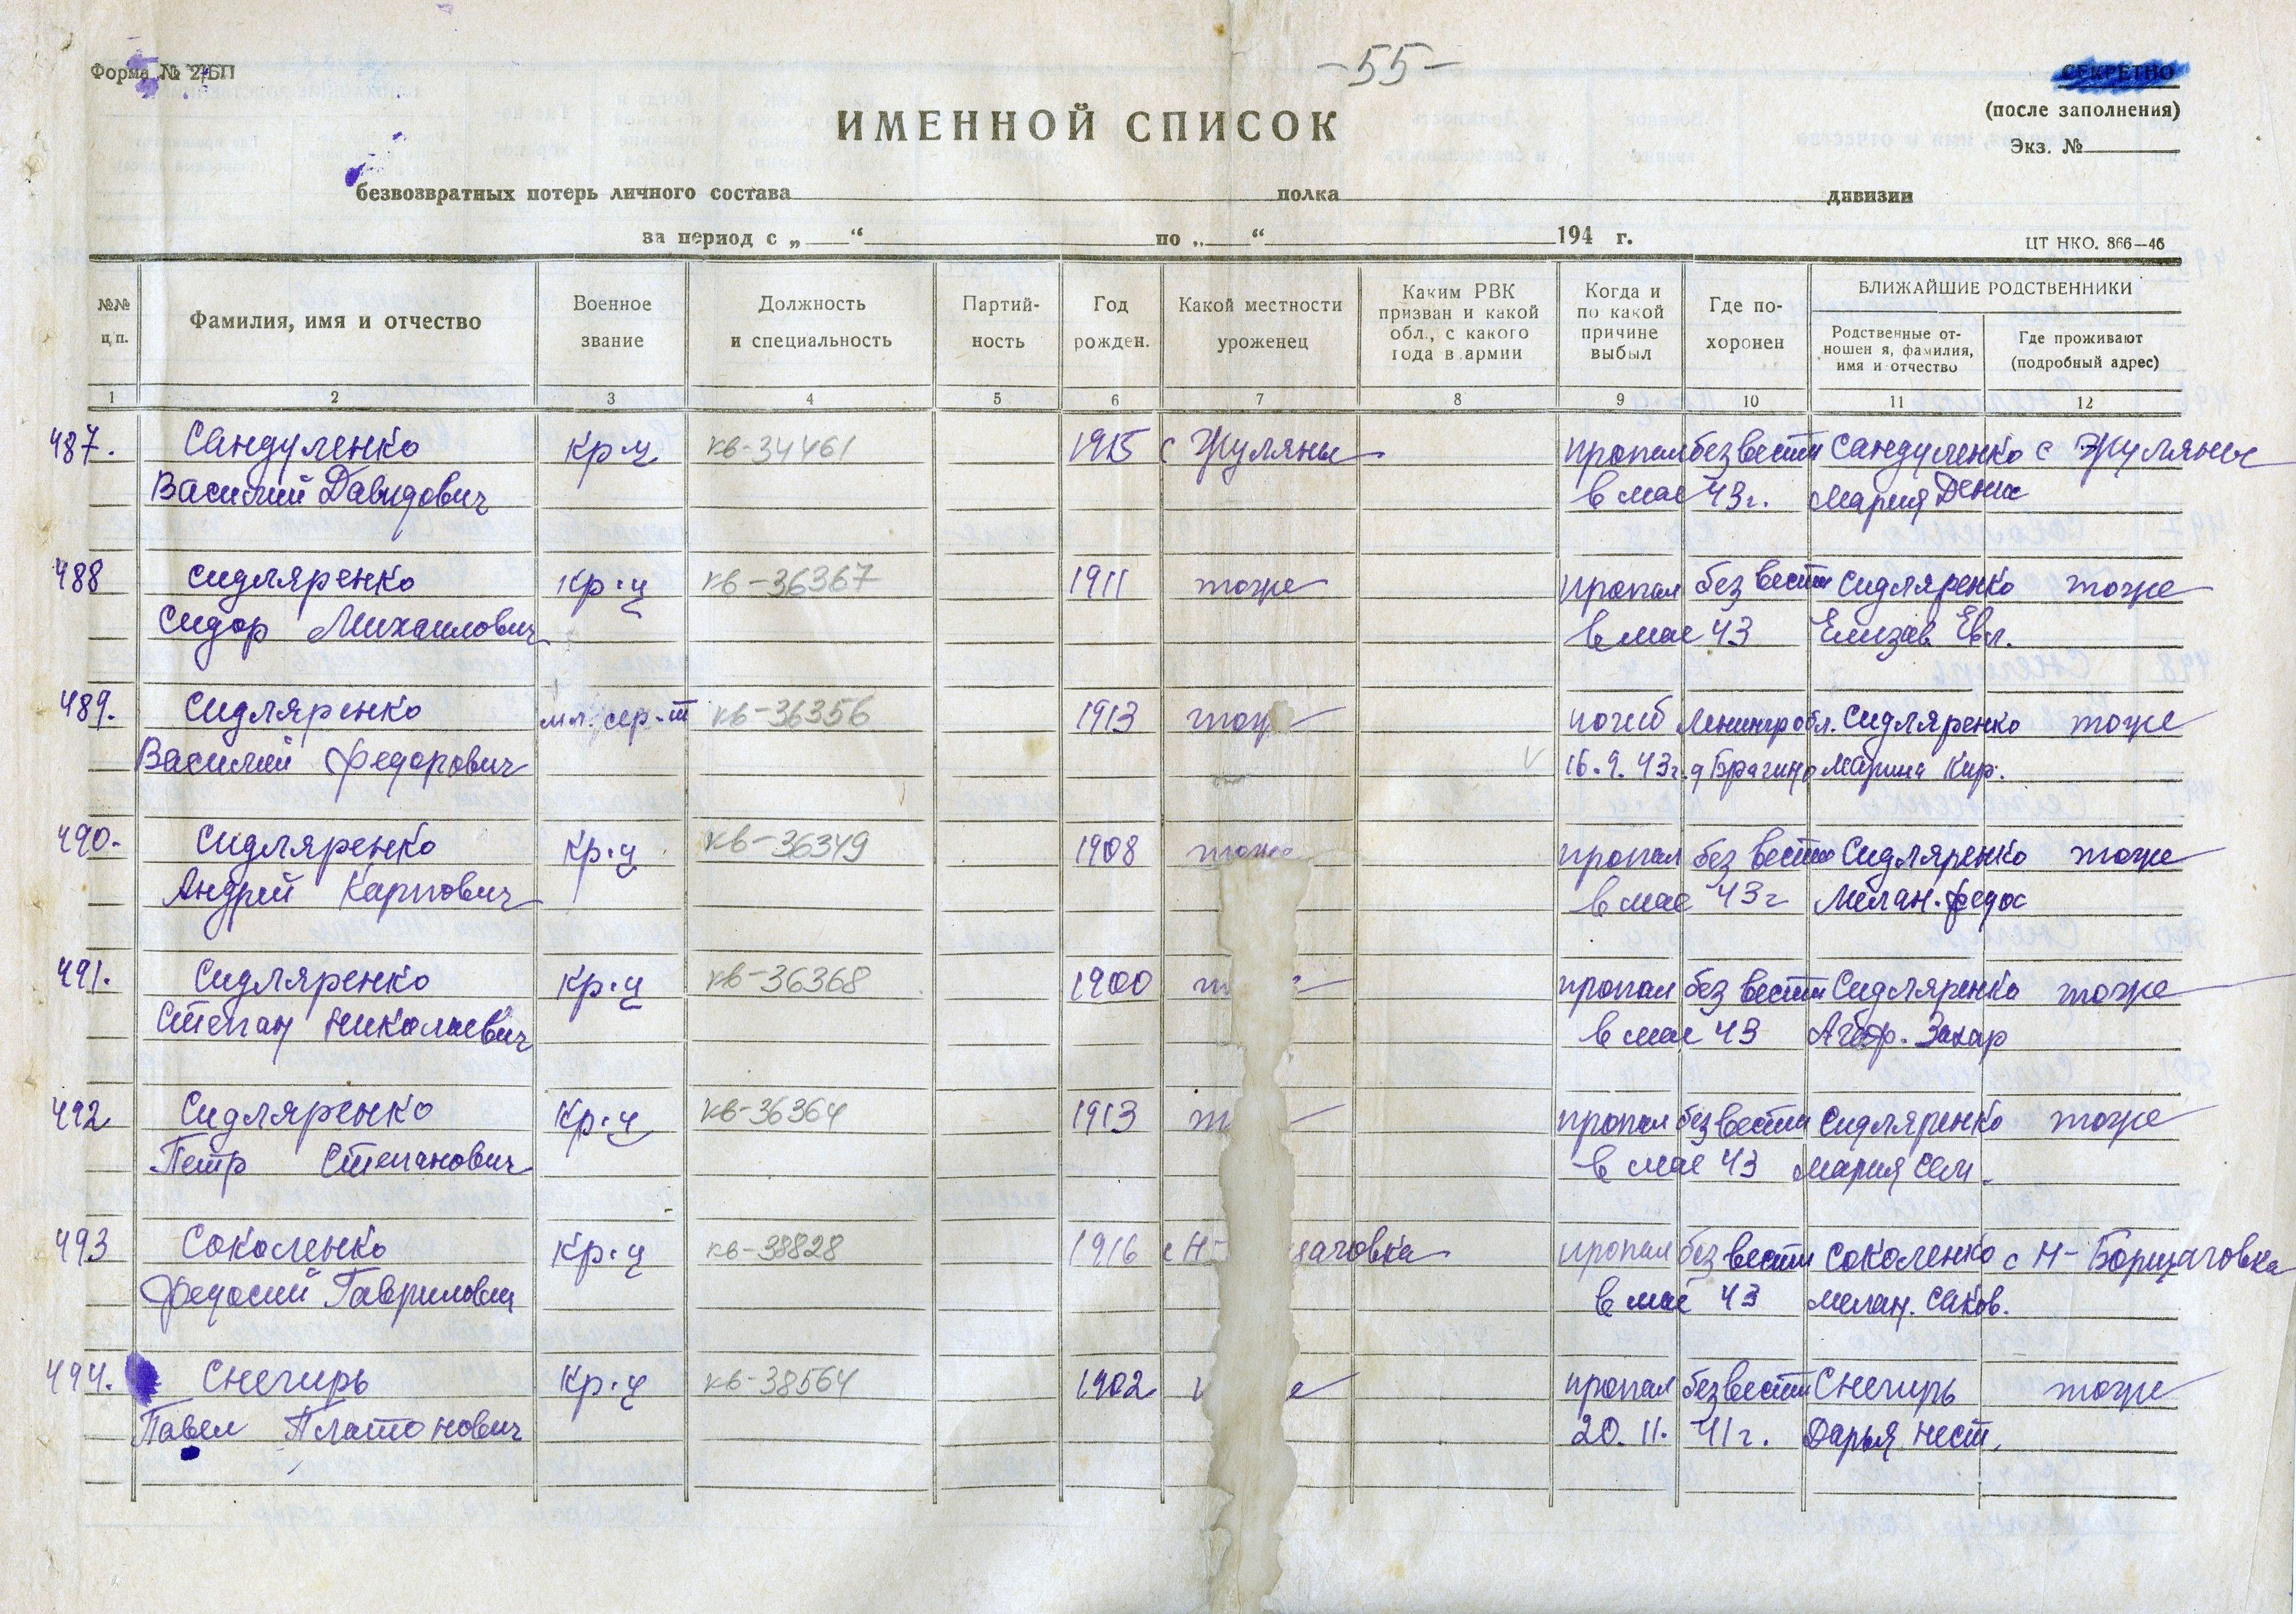 Форма № 2/БП
-55-
СЕКРЕТНО
(после заполнения)
Экз. №
ИМЕННОЙ СПИСОК
безвозвратных потерь личного состава полка дивизии
за период с „ “ по „ “ 194 г.
ЦТ НКО. 866—46
№№ п.п.
Фамилия, имя и отчество
Военное звание
Должность и специальность
Партий-
ность
Год рожден.
Какой местности уроженец
Каким РВК
призван и какой
обл., с какого
года в армии
Когда и
по какой
причине
выбыл
Где по-
хоронен
БЛИЖАЙШИЕ РОДСТВЕННИКИ
Родственные от-
ношен я, фамилия,
имя и отчество
Где проживают
(подробный адрес)
1 2 3 4 5 6 7 8 9 10 11 12
487. Сандуленко кр-ц кв-34461 1915 с Жуляны пропал без вести Сандуленко с Жуляны
Василий Давидович в мае 43г. Мария Дении
488 Сидляренко кр-ц кв-36367 1911 тоже пропал без вести Сидляренко тоже
Сидор Михаилович в мае 43 Елизав Евл.
489. Сидляренко мл. сер-т кв-36356 1913 тож погиб Ленингр обл. Сидляренко тоже
Василий Федорович 16.9.43г. д Брагино Марина Кир.
490. Сидляренко кр-ц кв-36349 1908 тоже пропал без вести Сидляренко тоже
Андрей Карпович в мае 43г Мелан. Федос
491. Сидляренко кр-ц кв-36368 1900 т пропал без вести Сидляренко тоже
Степан Николаевич в мае 43 Захар
492 Сидляренко кр-ц кв-36364 1913 т пропал без вести Сидляренко тоже
Петр Степанович в мае 43 Мария Сем.
493 Соколенко кр-ц кв-38828 1916 с Н- щаговка пропал без вести Соколенко с Н-Борщаговка
Федосий Гаврилович в мае 43 Мелан. Саков.
494. Снегирь кр-ц кв-38564 1902 е пропал без вести Снегирь тоже
Павел Платонович 20.11.41г. Дарья Нест.